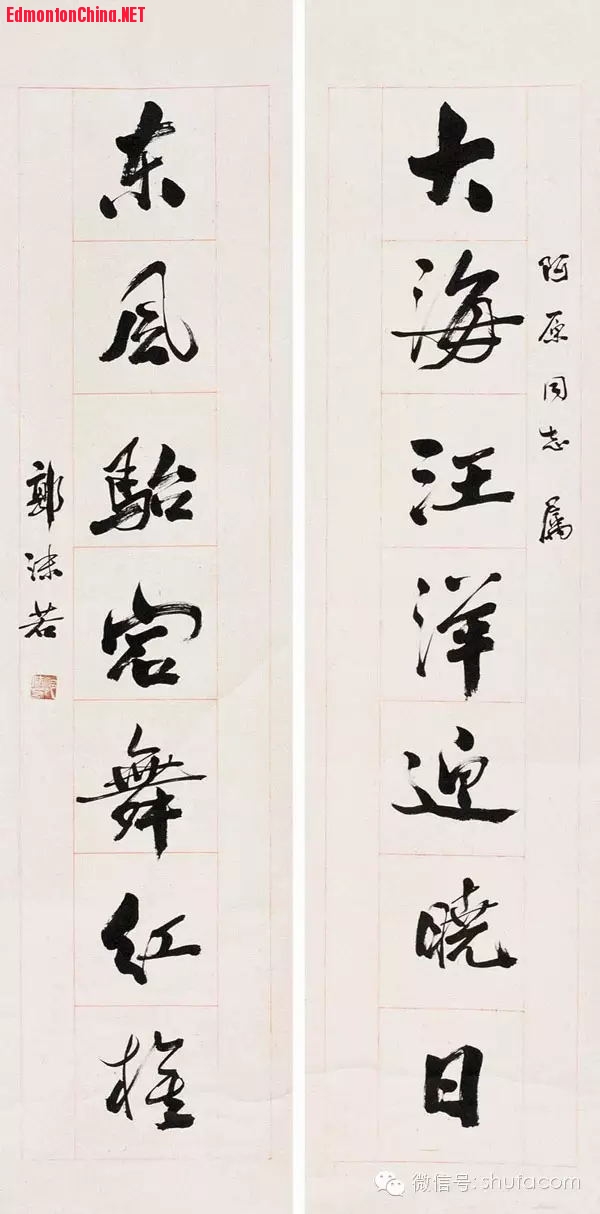 EdmontonChina.NET
阿原同志 属
大海汪洋迎晓日
东风駘宕舞红旌
郭沫若
微信号: shufacom